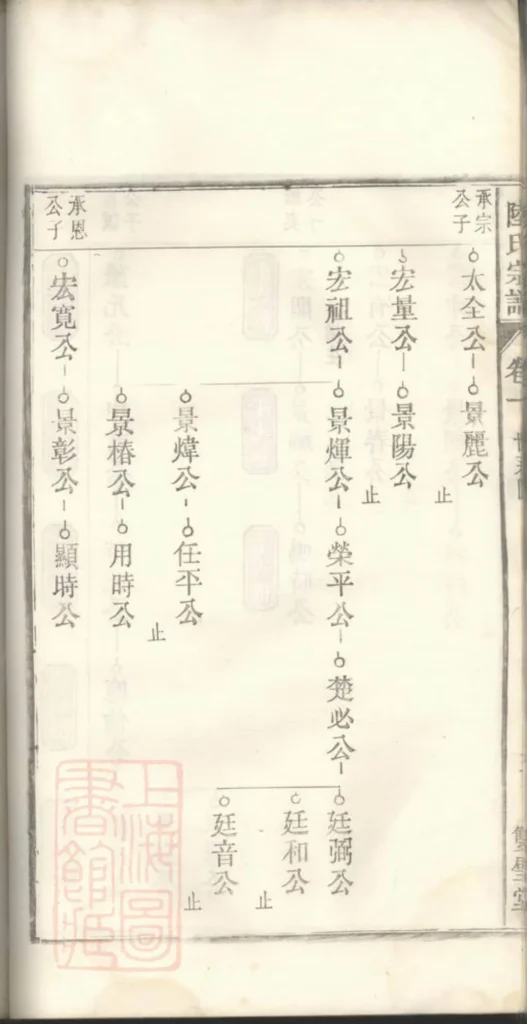 氏宗譜
卷一
承宗公子
太全公
景麗公
止
宏量公
景陽公
止
宏祖公
景煇公
榮平公
楚必公
廷弼公
廷和公
止
廷音公
止
景煒公
任平公
止
景椿公
用時公
承恩公子
宏寬公
景彰公
顯時公
上海圖書館藏